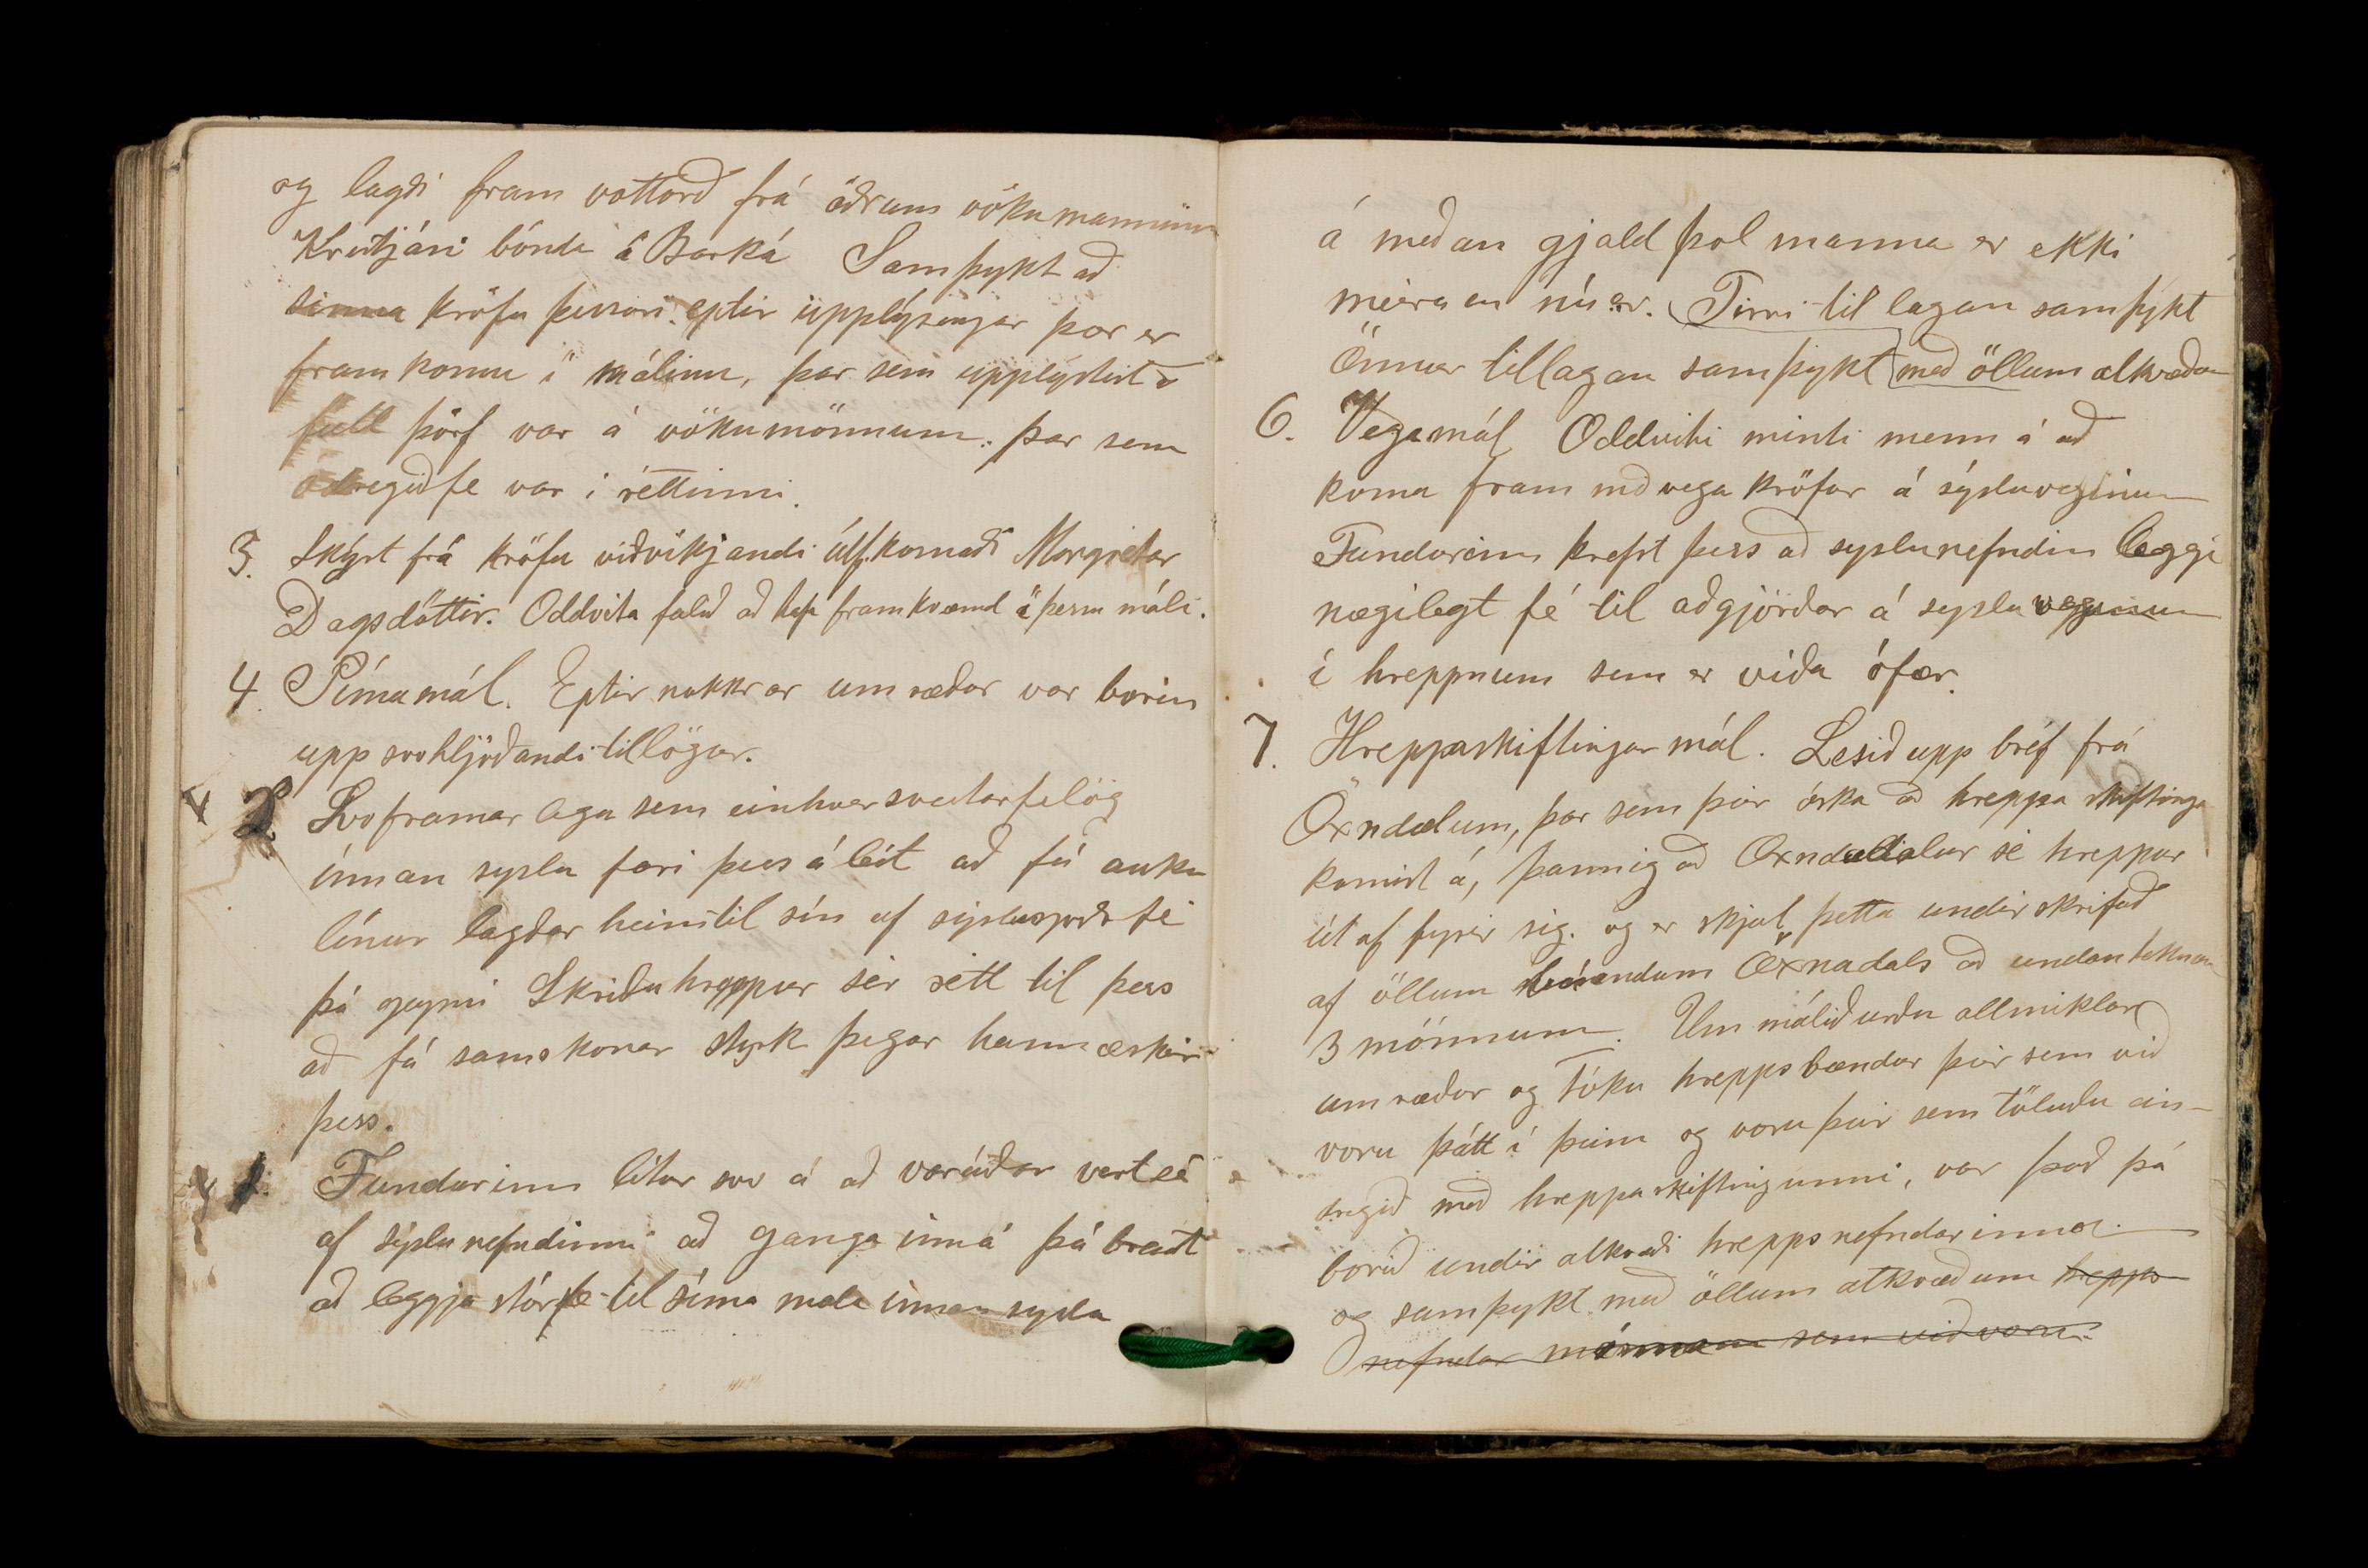 og lagði fram vottorð frá öðrum vökumanninum
Kristjáni bónda á Barká Samþykt að
sinna kröfu þessari eptir upplýsingar þar er
fram komu í málinu, þar sem upplýstist
full þörf var á vökumönnum. þar sem
ódregið fe var í réttinni.
3. Skýrt frá kröfu viðvíkjandi Margretar
Dagsdóttir. Oddvita falið að hafa framkvæmd í þessu máli.
4. Símamál. Eptir nokkrar umræður var borin
upp svohljóðandi tillögur.
4 Svo framarlega sem einhver sveitarfelög
innan syslu fari þess á leit að fá auka
línur lagðar heim til sín af syslusjóðs fé
þá geymi Skriðuhreppur sér rétt til þess
að fá samskonar styrk þegar hann æskir
þess.
4 Fundurinn lítur svo á að varúðar vert sé
af sýslunefndinni að ganga inná þá braut
að leggja stórfe til síma mála innan syslu
á meðan gjaldþol manna er ekki
meira en nú er. Firri tillagan samþykt
Önnur tillagan samþykt með öllum atkvæðum
6. Vegamál Oddviti minti menn á að
koma fram með vega kröfur á sýsluveginum
Fundurinn krefst þess að syslunefndin leggi
nægilegt fé til aðgjörðar á sysluveginum
í hreppnum sem er víða ófær.
7. Hreppaskiftingar mál. Lesið upp bréf frá
Öxndælum, þar sem þeir óska að hreppa skiftinga
komist á, þannig að Öxnadalur sé hreppur
út af fyrir sig. og er skjal þetta undirskrifað
af öllum búendum Öxnadals að undanteknum
3 mönnum. Um málið urðu allmiklar
umræður og tóku hreppsbændur þeir sem við
voru þátt í þeim og voru þeir sem töluðu ein-
dregið með hreppaskiftingunni, var það þá
borið undir atkvæði hreppsnefndarinnar
og samþykt með öllum atkvæðum hrepps
nefndar mönnum sem við voru.